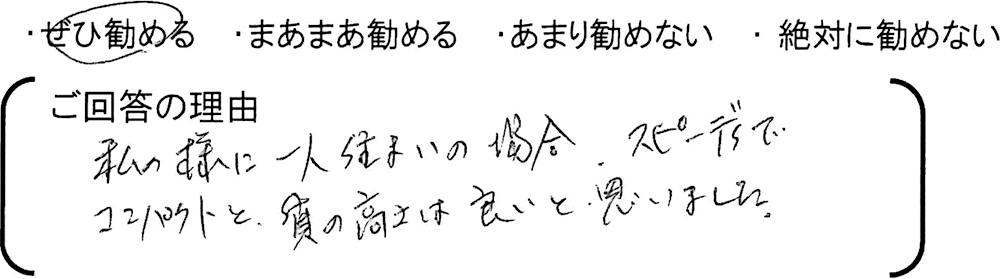 ・ぜひ勧める ・まあまあ勧める ・あまり勧めない ・絶対に勧めない
ご回答の理由
私の様に一人住まいの場合、スピーディで
コンパクトと、質の高さは良いと思いました。